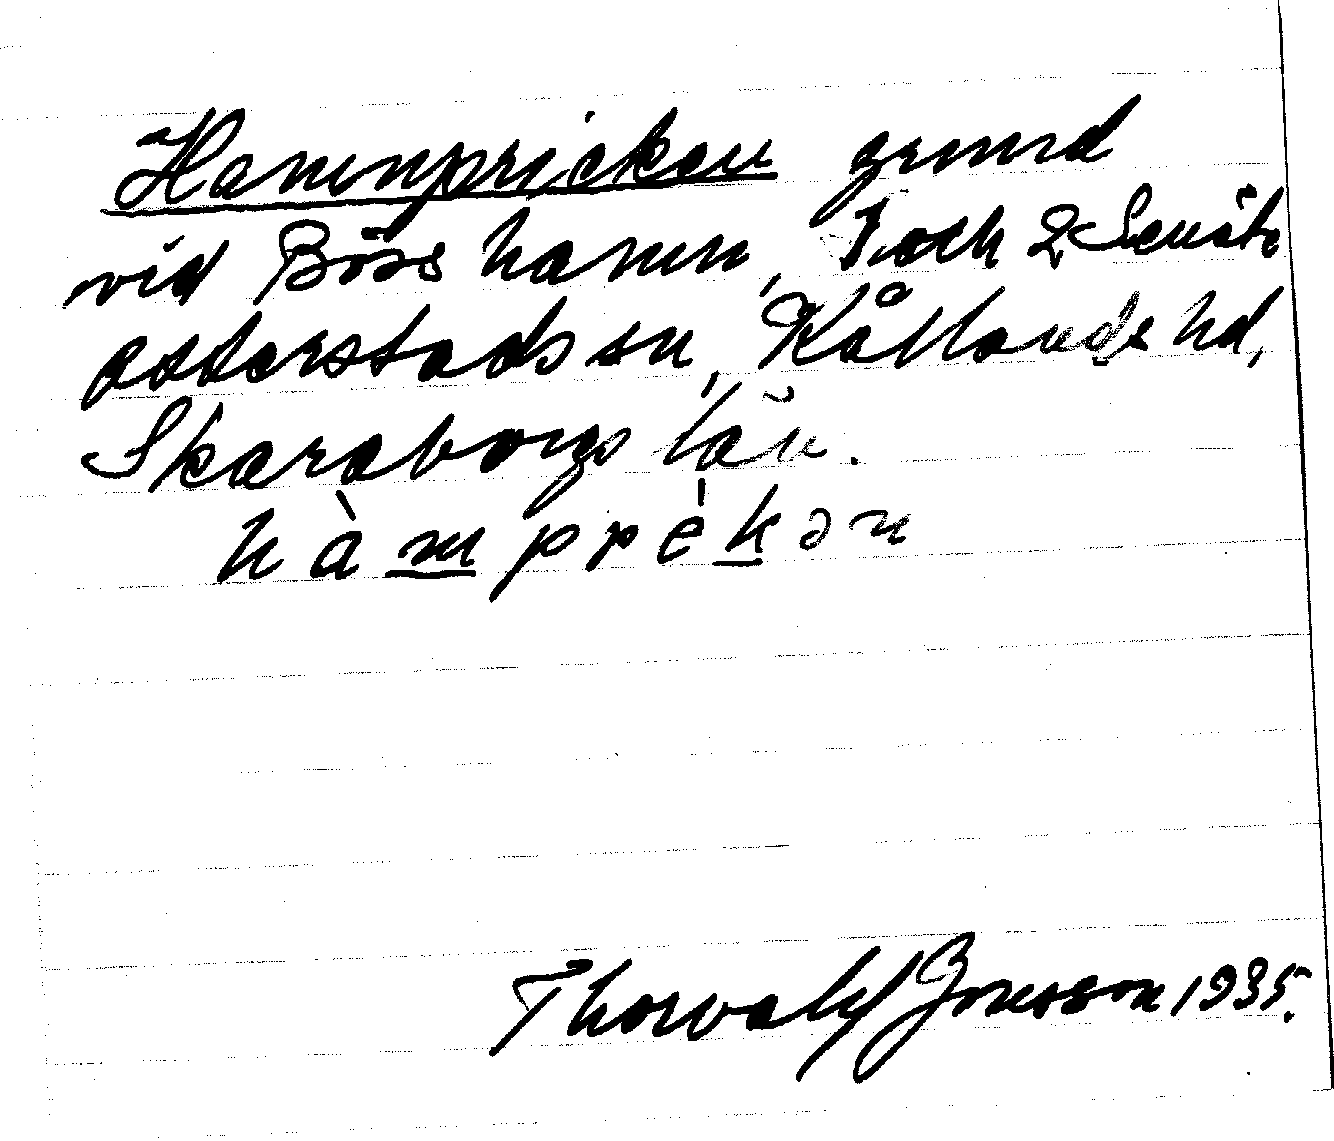 Hamnpricken grund
vid Böss hamn, 1 och 2 Senäte
otterstads sn, Kållands hd,
Skaraborgs län.
hàmprèkən
Thorvald Jonsson 1935.